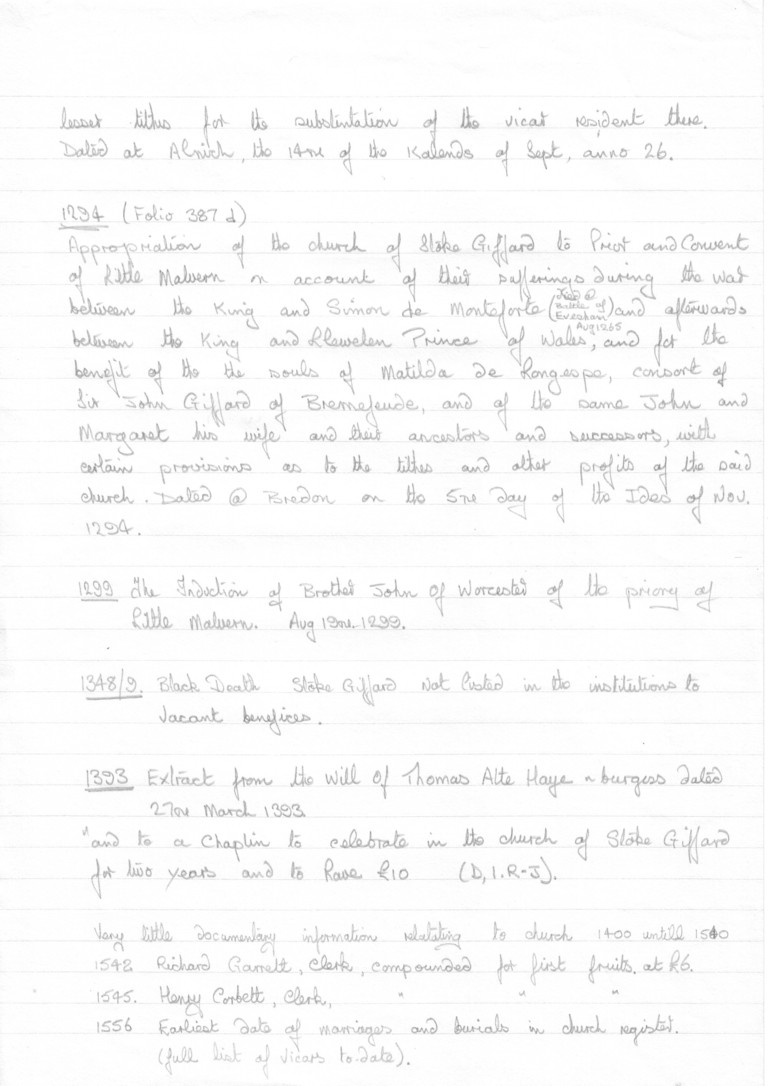 lesser tithes for the substintation of the vicar resident there.
Dated at Alnich, the 14th of the Kalends of Sept, anno 26.
1294 (Folio 387 d)
Appropriation of the church of Stoke Giffard to Prior and Convent
of Little Malvern on account of their sufferings during the war
between the King and Simon de Monteforte (Died @ Battle of Evesham Aug 1265) and afterwards
between the King and Llewelen Prince of Wales, and for the
benefit of the the souls of Matilda de Longespe, consort of
Sir John Giffard of Bremefeude, and of the same John and
Margaret his wife and their ancestors and successors, with
certain provisions as to the tithes and other profits of the said
church. Dated @ Bredon on the 5th day of the Ides of Nov.
1294.
1299 The Induction of Brother John of Worcester of the priory of
Little Malvern. Aug 19th 1299.
1348/9. Black Death Stoke Giffard not listed in the institutions to
vacant benefices.
1393 Extract from the Will of Thomas Atte Haye a burgess dated
27th March 1393
"and to a Chaplin to celebrate in the church of Stoke Giffard
for two years and to have £10 (D, I. R-J).
Very little documentary information relatiting to church 1400 untill 1540
1542 Richard Garrett, Clerk, compounded for first fruits. at £6.
1545. Henry Corbett, Clerk, " " "
1556 Earliest date of marriages and burials in church register.
(full list of vicars to-date).